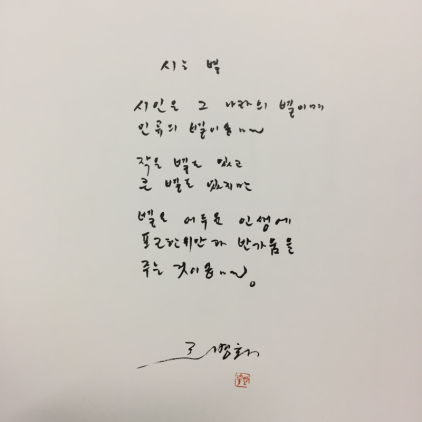 시는 별
시인은 그 나라의 별이며
인류의 별이옵니다
작은 별도 있고
큰 별도 있지만
별은 어두운 인생에
포근한 위안과 반가움을
주는 것이옵니다.
조병화